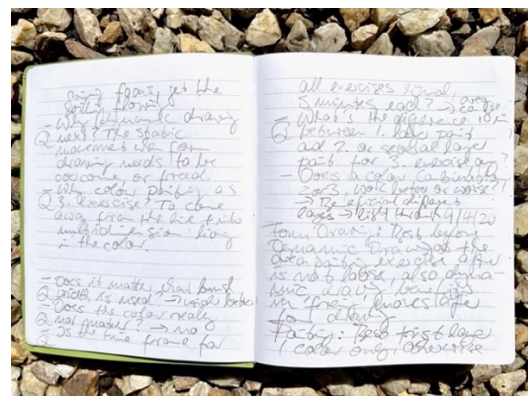 going from, get the
being flowing
- Why dynamic drawing
Q next? The static
movement when form
drawing needs to be
overcome or freed.
- Why colour painting as
Q 3. exercise? To come
away from the line into
multidimension living
in the color.
- Does it matter what brush
Q width is used? →
- Does the color really
Q not matter? → no
- Is the time frame for
Q
all exercises equal,
5 minutes each? →
- What's the difference
Q between 1. late paint
and 2. or several layer
paint for 3. exercise, any?
- Does a color combination
2 or 3, work better or worse?!
→ Beneficial different
days → light 9/4/20
Form Drawing: Best before
Dynamic Drawing as the
area painting exercise after
is not labss, also dyna-
mic drawing benefits
in "freeing" muscles after
form drawing
Painting: Best first layer
1 color only, otherwise